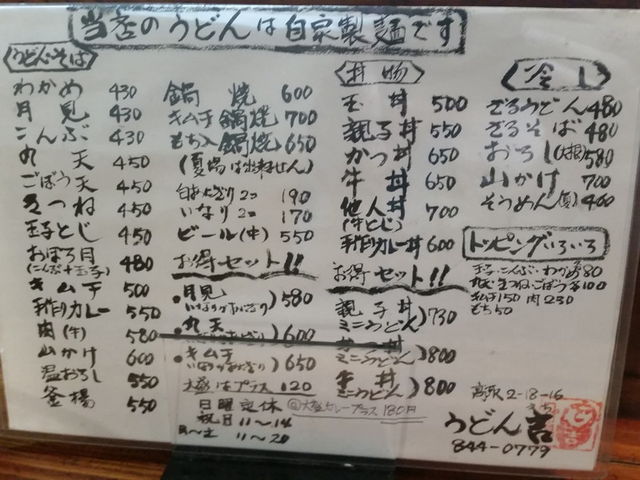 当店のうどんは自家製麺です
うどん・そば
わかめ 430
月見 430
こんぶ 430
丸天 450
ごぼう天 450
きつね 450
玉子とじ 450
おぼろ月 480
(こんぶ+玉子)
キムチ 500
手作りカレー 550
肉(牛) 580
山かけ 600
温おろし 550
釜揚 550
鍋焼 600
キムチ鍋焼 700
もち入鍋焼 650
(夏場は出来ません)
白おにぎり2コ 190
いなり2コ 170
ビール(中) 550
お得セット!!
・月見 580
・丸天 600
・キムチ 650
大盛はプラス 120
日曜定休
大盛カレープラス 180円
祝日 11〜14
月〜土 11〜20
丼物
玉丼 500
親子丼 550
かつ丼 650
牛丼 650
他人丼 700
(牛とじ)
手作りカレー丼 600
お得セット!!
親子丼
ミニうどん 730
かつ丼
ミニうどん 800
牛丼
ミニうどん 800
冷し
ざるうどん 480
ざるそば 480
おろし(大根) 580
山かけ 700
そうめん(夏) 460
トッピングいろいろ
玉子・こんぶ・わかめ 80
丸天・きつね・ごぼう天 100
キムチ150 肉250
もち50
高取 2-18-16
うどん吉
844-0779